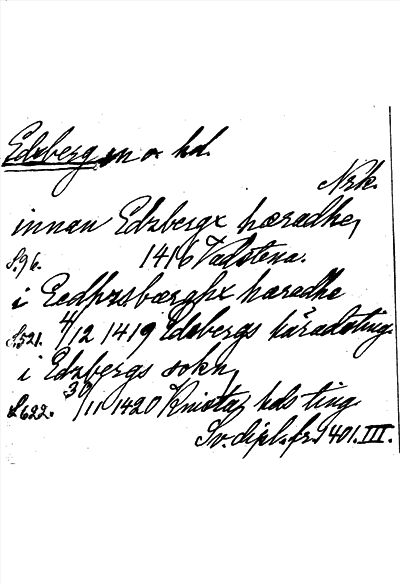 Edsberg sn o hd.
Nrk.
innan Edzbergx hæradhe,
S.96. 1416 Vadstena.
i Eedhzsbærghx hæredhe
S.521. 4/12 1419 Edsbergs häradsting.
i Edzbergs sokn,
S.622. 30/11 1420 Knista, hds ting.
Sv. dipl. fr. 1401. III.